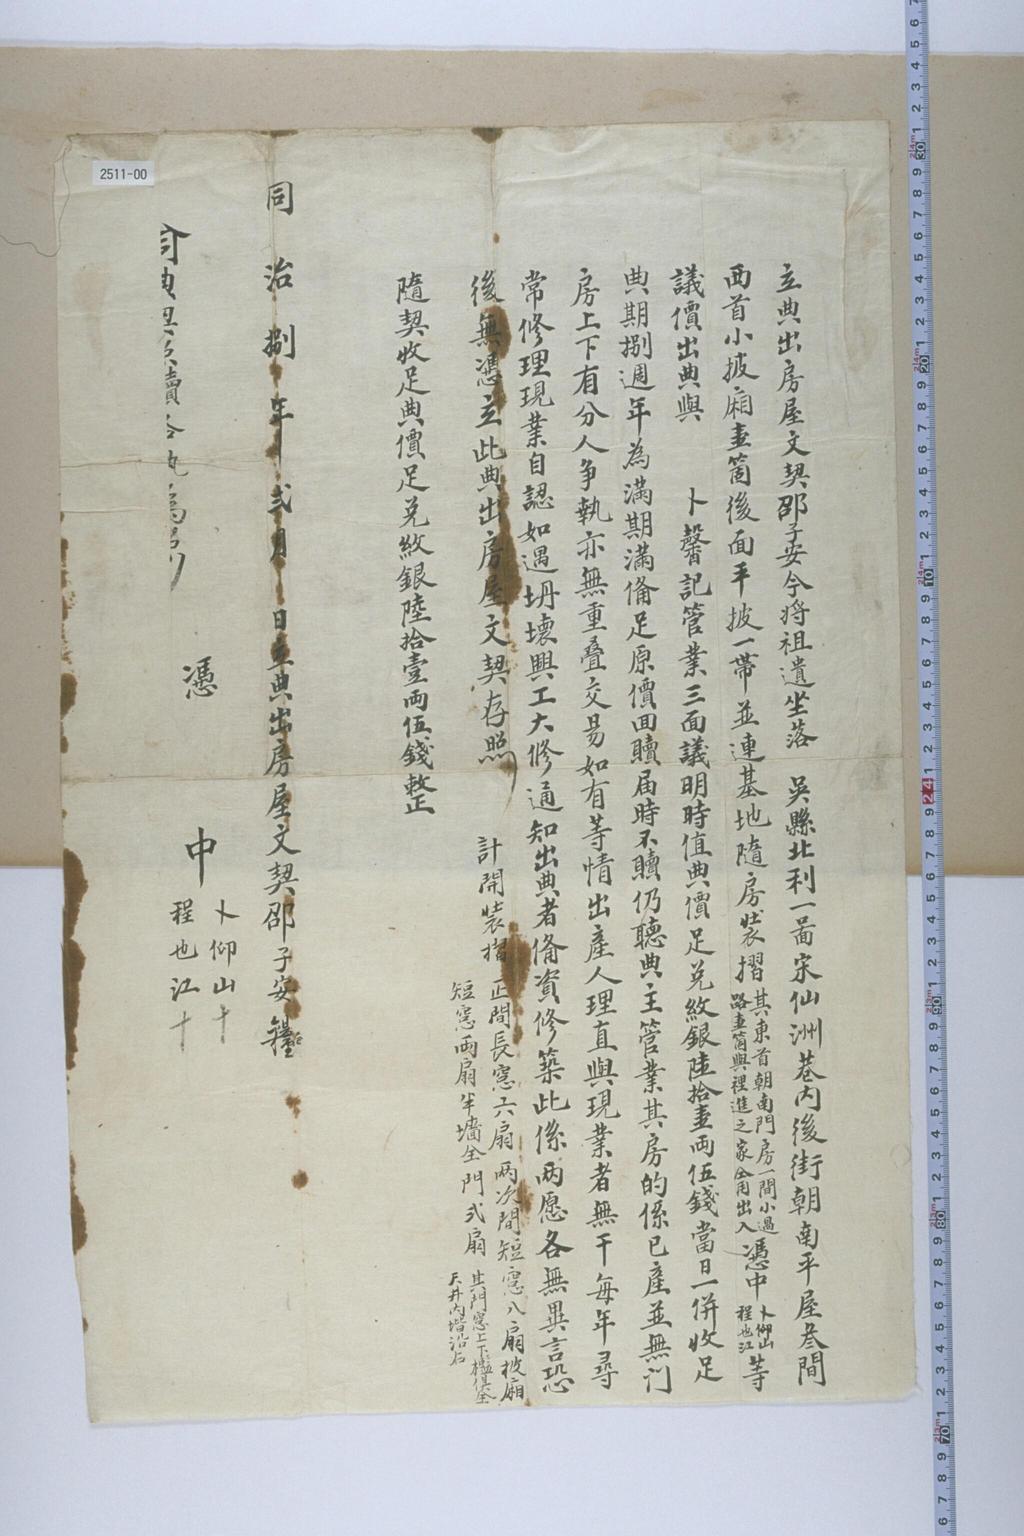 立典出房屋文契邵子安今將祖遺坐落 吳縣北利一啚宋仙洲巷內後街朝南平屋叄間
西首小披廂壹箇後面平披一帶並連基地隨房裝摺
其東首朝南門房一間小過
路壹箇與裡進之家仝用出入
憑中
卜仰山
程也江
等
議價出典與 卜馨記管業三面議明時值典價足兌紋銀陸拾壹兩伍錢當日一併收足
典期捌週年為滿期滿備足原價回贖届時不贖仍聽典主管業其房的係已產並無门
房上下有分人爭執亦無重叠交易如有等情出產人理直與現業者無干每年尋
常修理現業自認如遇坍壞興工大修通知出典者備資修築此係兩愿各無異言恐
後無憑立此典出房屋文契存照
計開裝摺
正間長窓六扇 兩次間短窓八扇披廂
短窓兩扇半墻全門弍扇
其門窓上下檻俱全
天井內堦沿石
隨契收足典價足兌紋銀陸拾壹兩伍錢整
同治捌年弍月 日立典出房屋文契邵子安
憑
中
卜仰山十
程也江十
2511-00